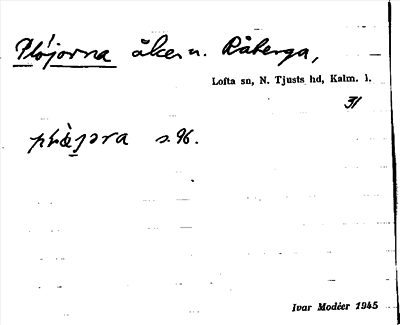 Plöjorna åker u. Råberga,
Lofta sn, N. Tjusts hd, Kalm. l.
31
s. 96.
Ivar Modéer 1945